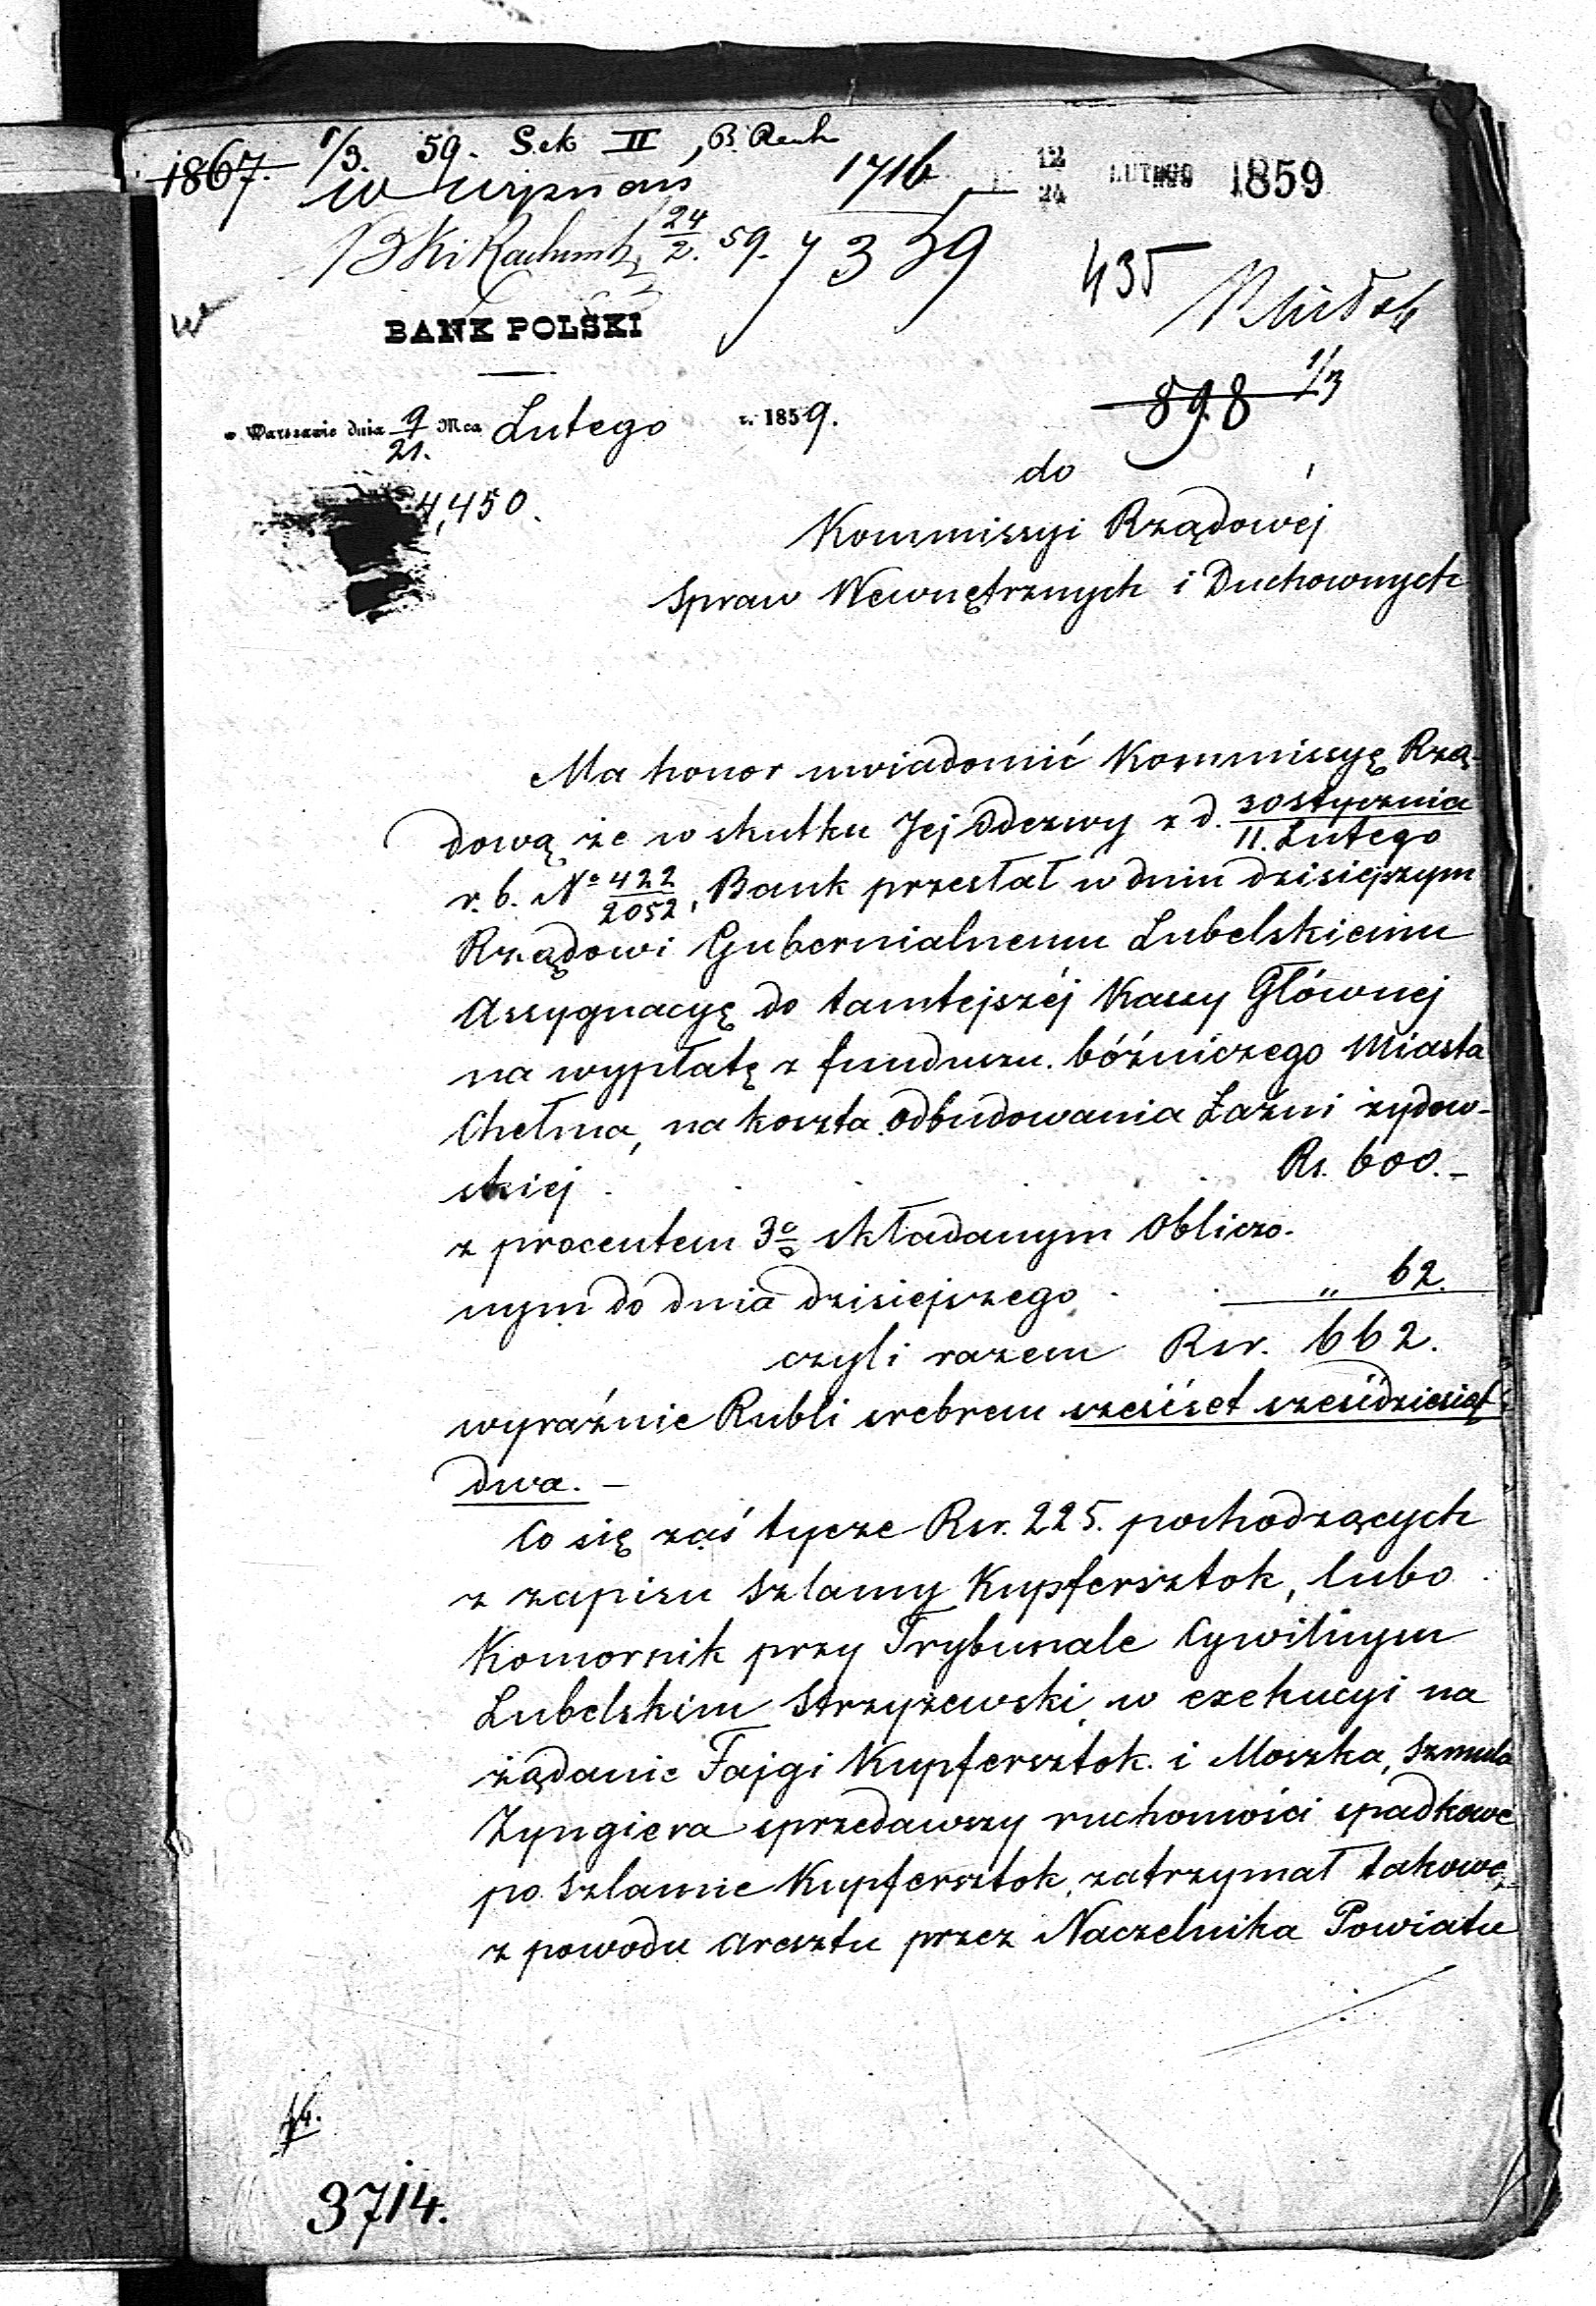 1867. 1/3. 59. Sek II, B. Rach
1716 12/24 LUTEGO 1859
24/2. 59. 7359
435
BANK POLSKI
898 1/3
w Warszawie dnia 9/21. Mca Lutego r. 1859.
4,450.
do
Kommissyi Rządowéj
Spraw Wewnętrznych i Duchownych
Ma honor uwiadomić Kommissyę Rzą-
dową że w skutku Jej Odezwy z d. 30 Stycznia/11. Lutego
r. b. No 422/2052, Bank przesłał w dniu dzisiejszym
Rządowi Gubernialnemu Lubelskiemu
Assygnacyę do tamtejszéj Kassy Głównej
na wypłatę z funduszu bóźniczego Miasta
Chełma, na koszta odbudowania Łaźni żydow-
skiej . . . Rs. 600.-
z procentem 3% składanym obliczo-
nym do dnia dzisiejszego . . „ 62.
czyli razem Rsr. 662.
wyraźnie Rubli srebrem sześćset sześćdziesiąt
dwa. –
Co się zaś tycze Rsr. 225. pochodzących
z zapisu Szlamy Kupfersztok, lubo
Komornik przy Trybunale Cywilnym
Lubelskim Strzyżewski, w exekucyi na
żądanie Fajgi Kupfersztok i Moszka, Szmula
Zyngiera sprzedawszy ruchomości spadkowe
po Szlamie Kupfersztok, zatrzymał takowe,
z powodu aresztu przez Naczelnika Powiatu
3714.